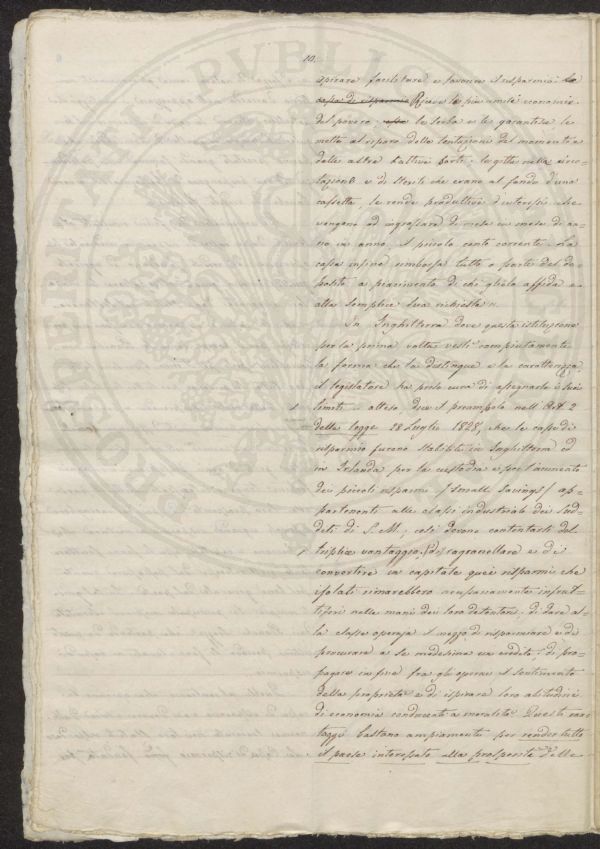 10.
spirare facilitare e favorire il risparmio la
cassa di risparmio Riceve le più umili economie
del povero esse le serba e le garantisce le
mette al riparo dalle tentazioni del momento e
dalle altre cattive sorti: le getta nella circo-
lazione e di sterili che erano al fondo d'una
cassetta, le rende produttive d'interessi che
vengono ad ingrossare di mese in mese di an-
no in anno il piccolo conto corrente. La
cassa infine rimborsa tutto o parte del de-
posito a piacimento di chi glielo affida e
alla semplice sua richiesta".
In Inghilterra dove questa istituzione
per la prima volta vestì compiutamente
la forma che la distingue e la caratterizza,
il legislatore ha preso cura di assegnarle i suoi
limiti. atteso, dice il preambolo nell'Art. 2
della legge 28 Luglio 1828, che le casse di
risparmio furono stabilite in Inghilterra ed
in Irlanda per la custodia e per l'aumento
dei piccoli risparmi /small savings/ ap-
partenenti alle classi industriali dei sud-
diti di S. M.; così devono contentarsi del
triplice vantaggio, di ragranellare e di
convertire in capitale quei risparmi che
isolati rimarebbero necessariamente infrut-
tiferi nelle mani dei loro detentori; di dare al-
la classe operaja il mezzo di risparmiare e di
procurare a se medesima un credito; di pro-
pagare infine fra gli operai il sentimento
della proprietà e di ispirare loro abitudini
di economia conducenti a moralità. Questi van-
taggi bastano ampiamente per render tutto
il paese interessato alla prosperità delle
PROSPERITATI PUBLICAE